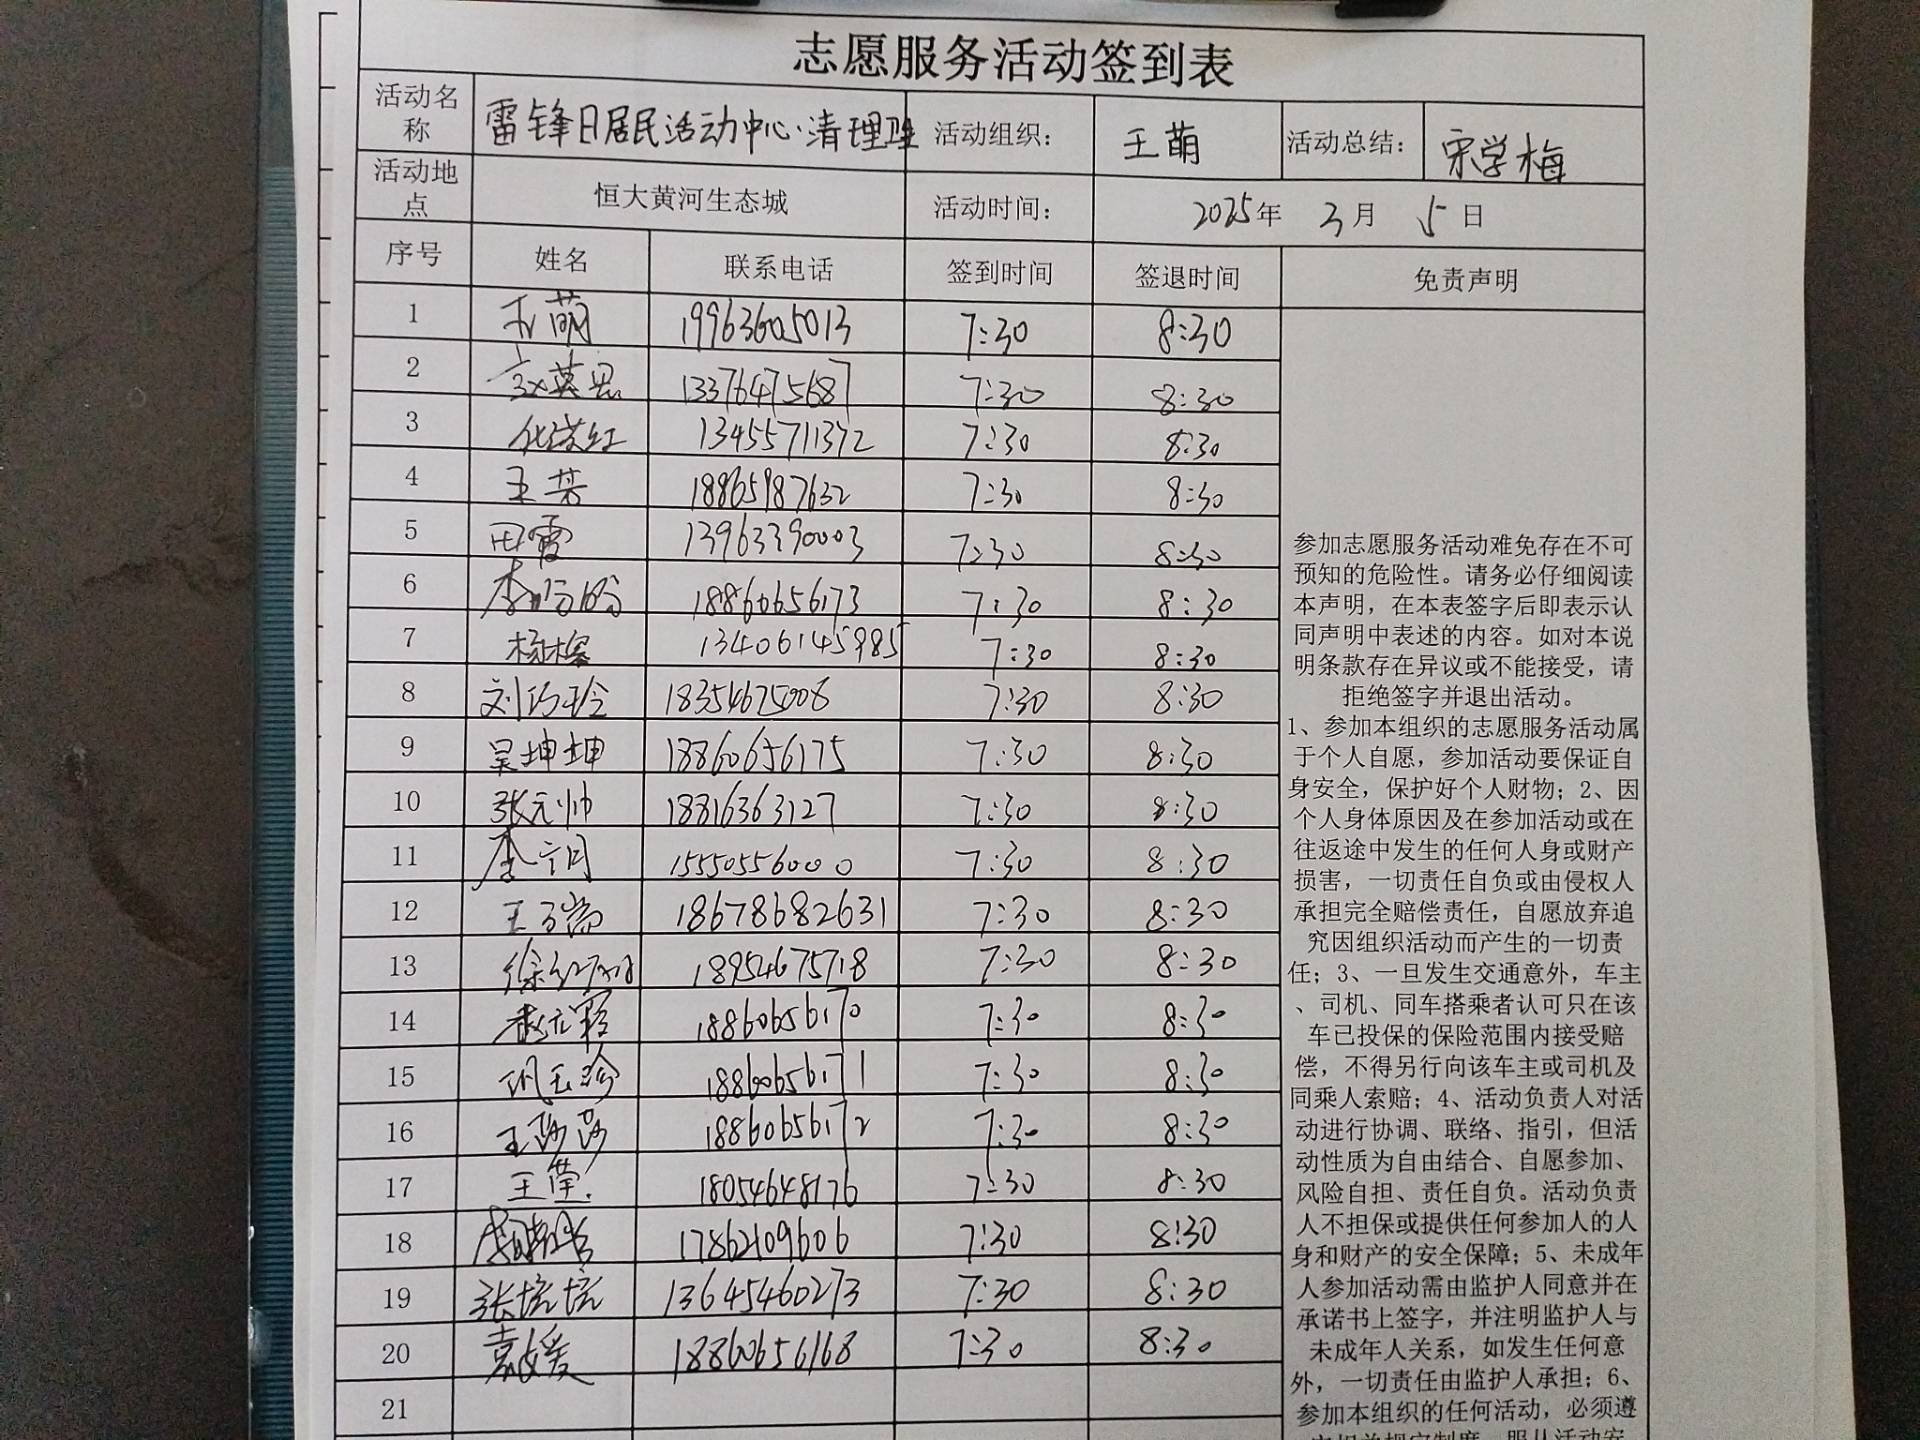 志愿服务活动签到表
活动名称 雷锋日居民活动中心·清理卫 活动组织： 王萌 活动总结： 宋学梅
活动地点 恒大黄河生态城 活动时间： 2025年 3月 5日
序号 姓名 联系电话 签到时间 签退时间 免责声明
1 王萌 19963605013 7:30 8:30
2 13376475687 7:30 8:30
3 13455711372 7:30 8:30
4 王芹 18865987632 7:30 8:30
5 田霞 13963390003 7:30 8:30
6 李盼盼 18860656173 7:30 8:30
7 13406145985 7:30 8:30
8 刘巧玲 18354675008 7:30 8:30
9 吴坤坤 18860656175 7:30 8:30
10 张元帅 18816363127 7:30 8:30
11 李宁闰 15550556000 7:30 8:30
12 18678682631 7:30 8:30
13 18954675718 7:30 8:30
14 18860656170 7:30 8:30
15 巩玉珍 18860656171 7:30 8:30
16 王莎莎 18860656172 7:30 8:30
17 18054648176 7:30 8:30
18 17862109606 7:30 8:30
19 张境境 13645460273 7:30 8:30
20 袁媛 18860656168 7:30 8:30
21
参加志愿服务活动难免存在不可
预知的危险性。请务必仔细阅读
本声明，在本表签字后即表示认
同声明中表述的内容。如对本说
明条款存在异议或不能接受，请
拒绝签字并退出活动。
1、参加本组织的志愿服务活动属
于个人自愿，参加活动要保证自
身安全，保护好个人财物；2、因
个人身体原因及在参加活动或在
往返途中发生的任何人身或财产
损害，一切责任自负或由侵权人
承担完全赔偿责任，自愿放弃追
究因组织活动而产生的一切责
任；3、一旦发生交通意外，车主
、司机、同车搭乘者认可只在该
车已投保的保险范围内接受赔
偿，不得另行向该车主或司机及
同乘人索赔；4、活动负责人对活
动进行协调、联络、指引，但活
动性质为自由结合、自愿参加、
风险自担、责任自负。活动负责
人不担保或提供任何参加人的人
身和财产的安全保障；5、未成年
人参加活动需由监护人同意并在
承诺书上签字，并注明监护人与
未成年人关系，如发生任何意
外，一切责任由监护人承担；6、
参加本组织的任何活动，必须遵